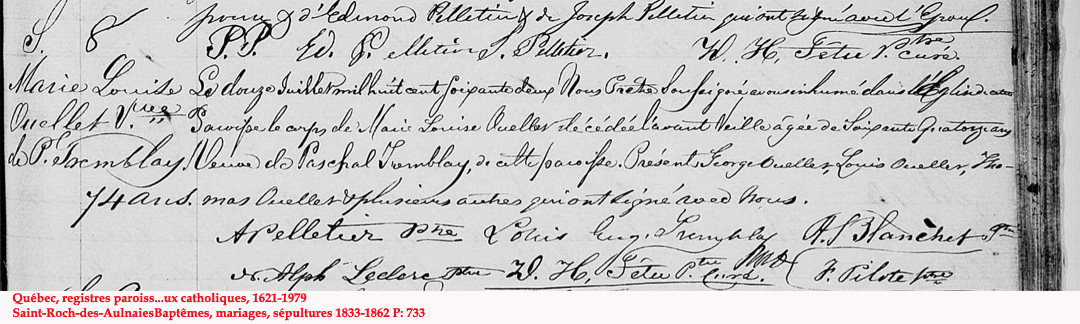 & d'Edmond Pelletier & de Joseph Pelletier qui ont signé avec l'Epoux.
S. 8 P.P. Ed. Pelletier J. Pelletier. W. H. Fêtu Ptre curé.
Marie Louise Le douze Juillet mil huit cent soixante deux Nous Prêtre Soussigné avons inhumé dans l'Eglise de cette
Ouellet Vve Paroisse le corps de Marie Louise Ouellet décédée l'avant Veille agée de Soixante Quatorze ans
de P. Tremblay. Veuve de Paschal Tremblay, de cette paroisse. Présents George Ouellet, Louis Ouellet, Tho-
74 ans. mas Ouellet & plusieurs autres qui ont signé avec Nous.
A Pelletier Ptre Louis Eug. Tremblay A. S Blanchet Ptre
Alph Leclerc Ptre W. H. Fêtu Ptr. curé. F. Pilote Ptre
Québec, registres paroiss...ux catholiques, 1621-1979
Saint-Roch-des-AulnaiesBaptêmes, mariages, sépultures 1833-1862 P: 733